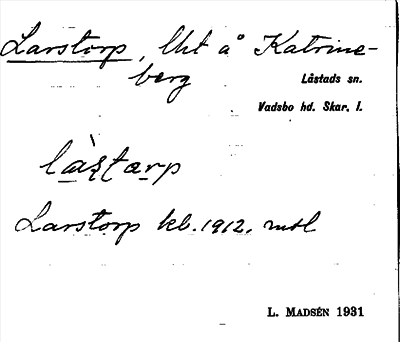 Larstorp, lht å Katrine-
berg
Låstads sn.
Vadsbo hd. Skar. l.
làstarp
Larstorp kb. 1912. mtl
L. MADSÉN 1931